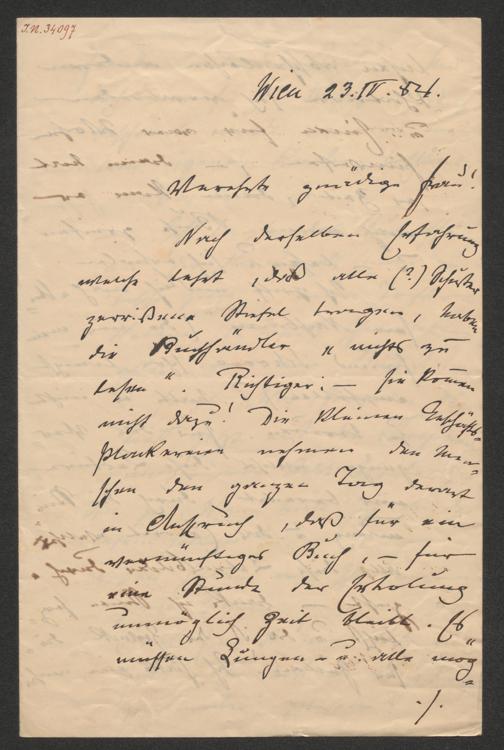 I.N. 34097
Wien 23.IV.84.
Verehrte gnädige Frau!
Nach derselben Erfahrung
welche lehrt, daß alle (?) Schuster
zerrissene Stiefel tragen, haben
die Buchhändler „nichts zu
lesen“. Richtiger: — sie kommen
nicht dazu! Die kleinen Geschäfts-
plackereien nehmen den Men-
schen den ganzen Tag derart
in Anspruch, daß für ein
vernünftiges Buch, — für
eine Stunde der Erholung
unmöglich Zeit bleibt. Es
müssen Zungen- u. alle mög-
./.